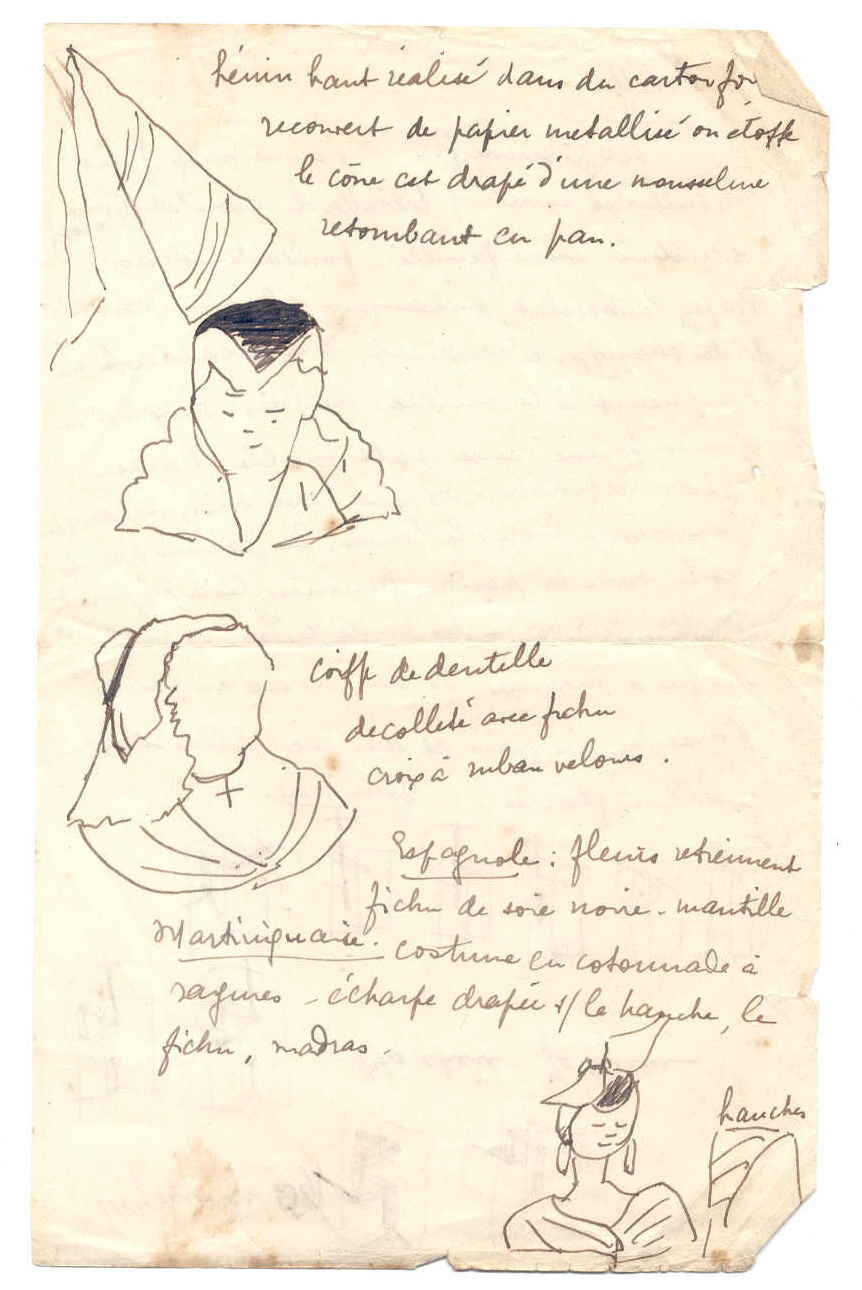 hénin haut réalisé dans du carton for
recouvert de papier metallisé ou étoffe
le cône est drapé d'une mousseline
retombant en pan.
coiffe de dentelle
decolleté avec fichu
croix à ruban velours.
Espagnole : fleurs retiennent
fichu de soie noire - mantille
Martiniquaise. costume en cotonnade à
rayures - écharpe drapée s/ le hanche, le
fichu, madras.
hanches